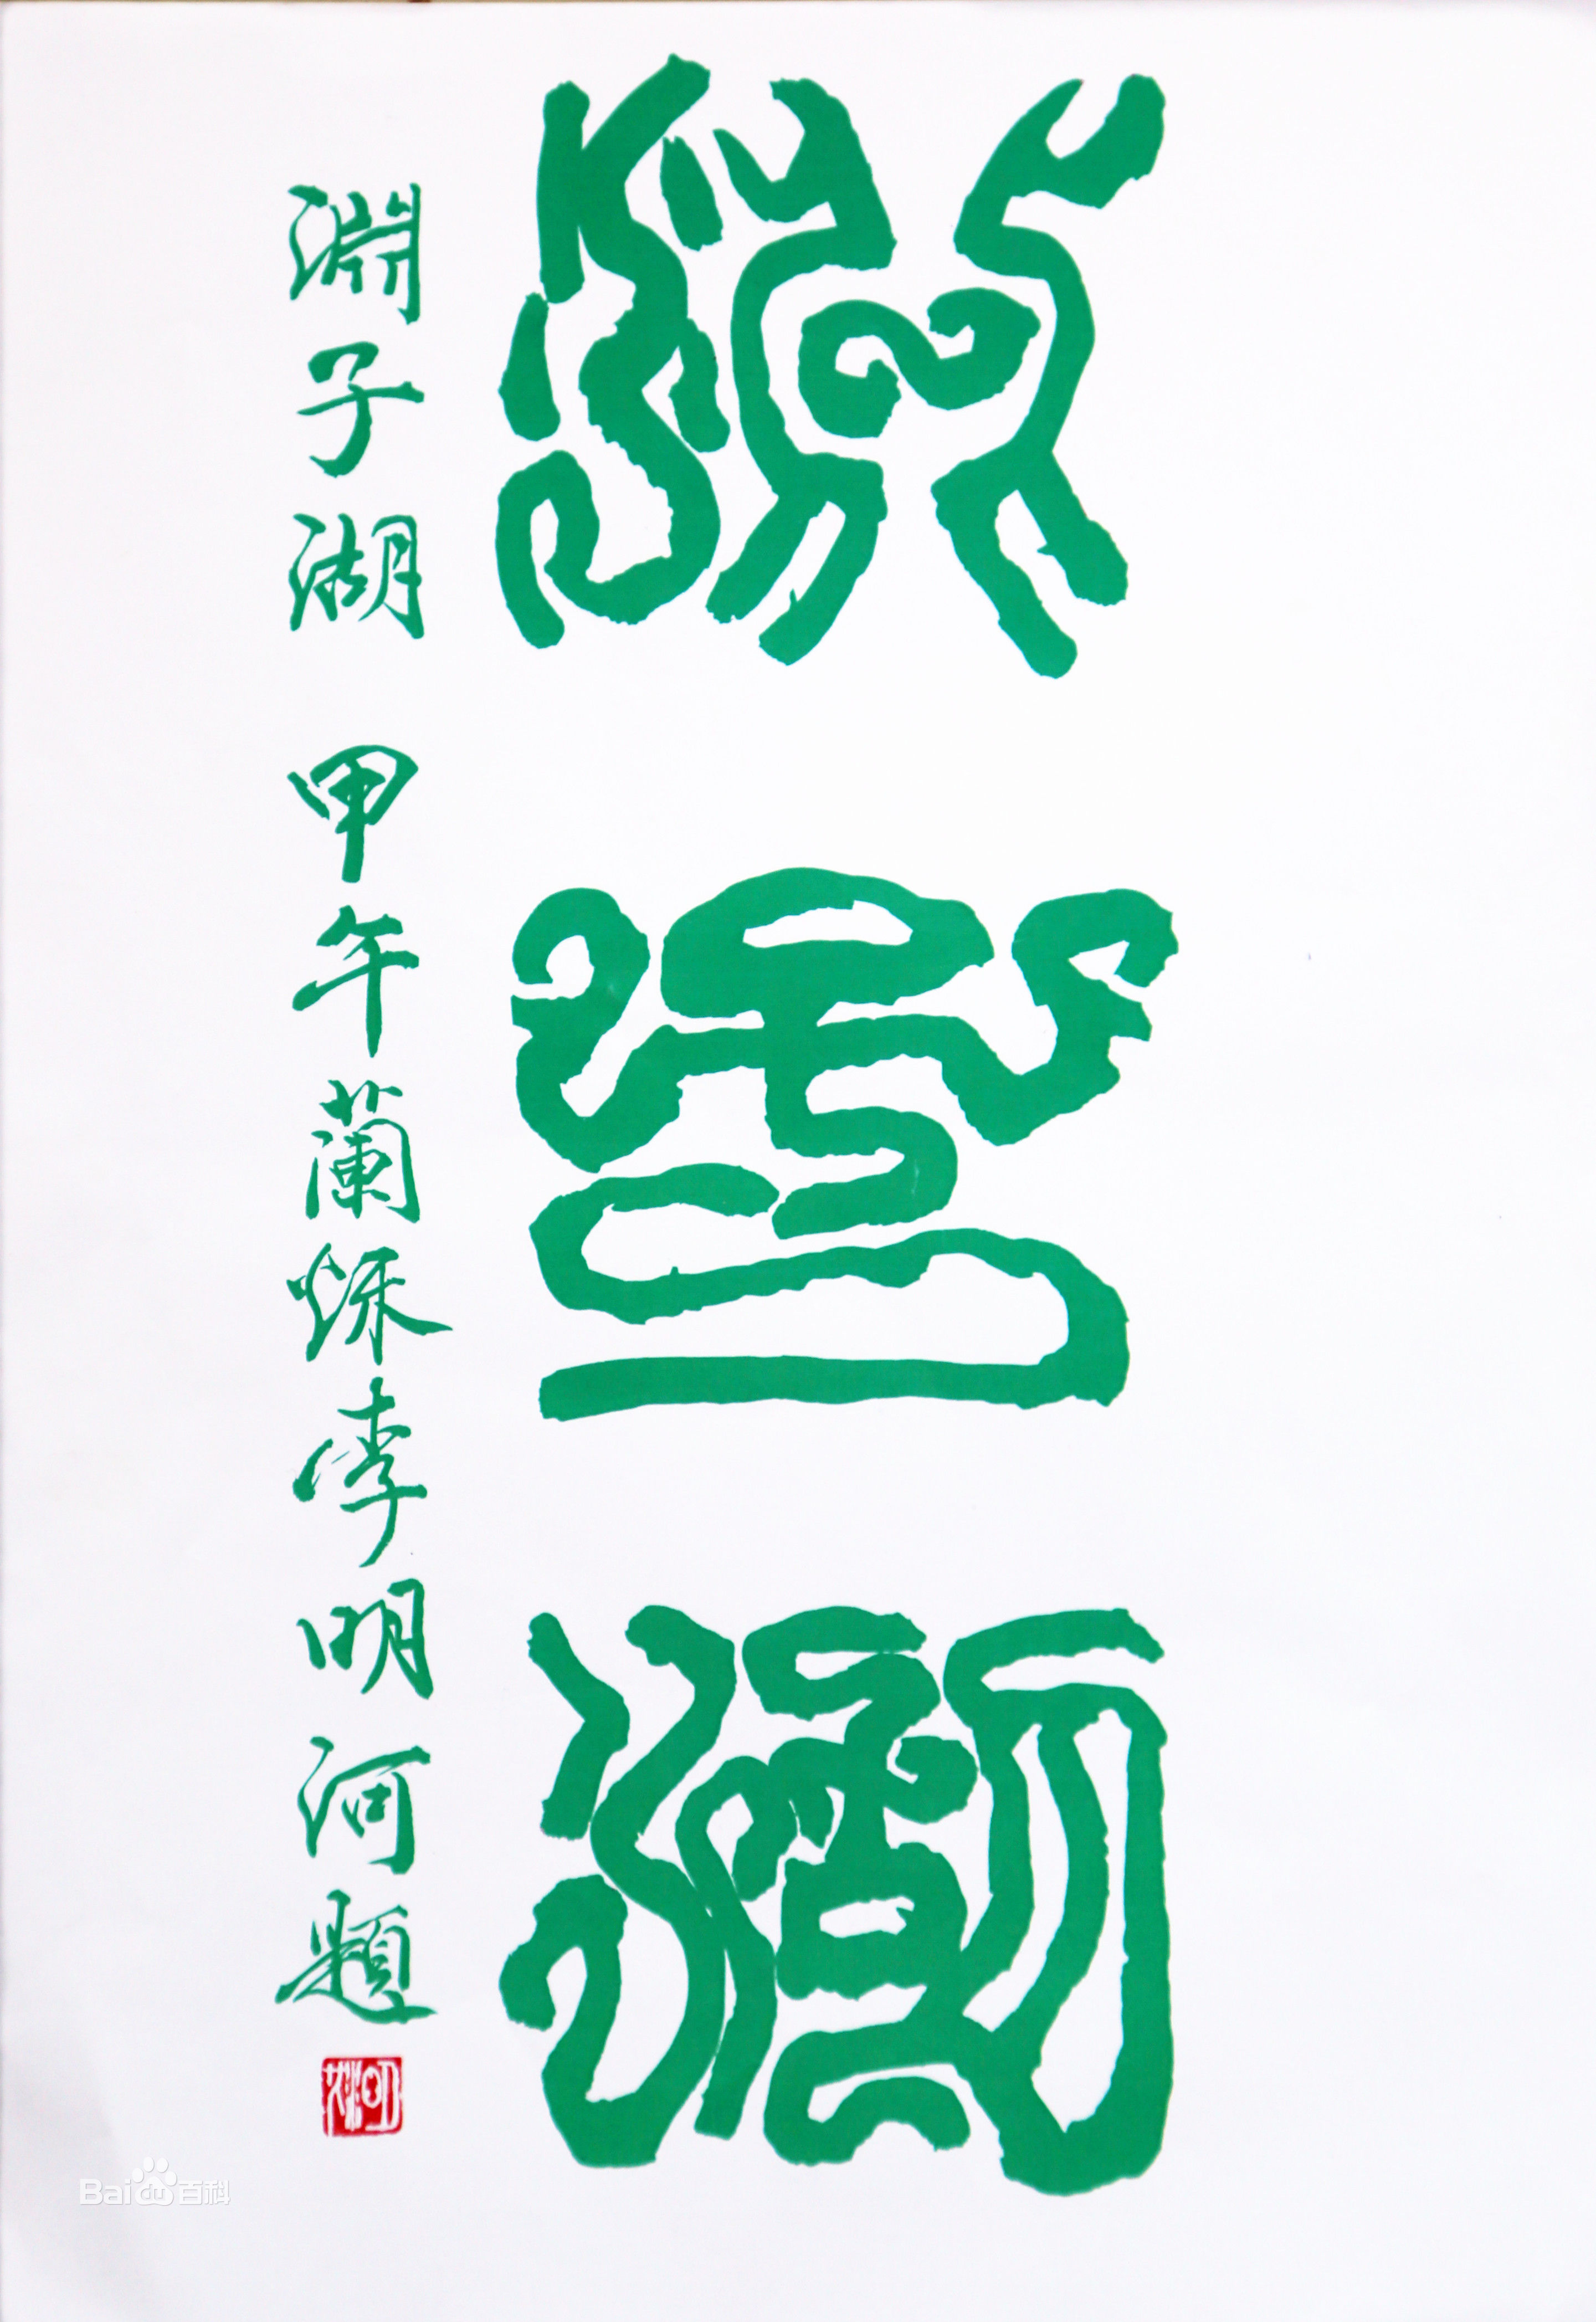 淵子湖
淵子湖 甲午蘭秌李明河題
Bai百科